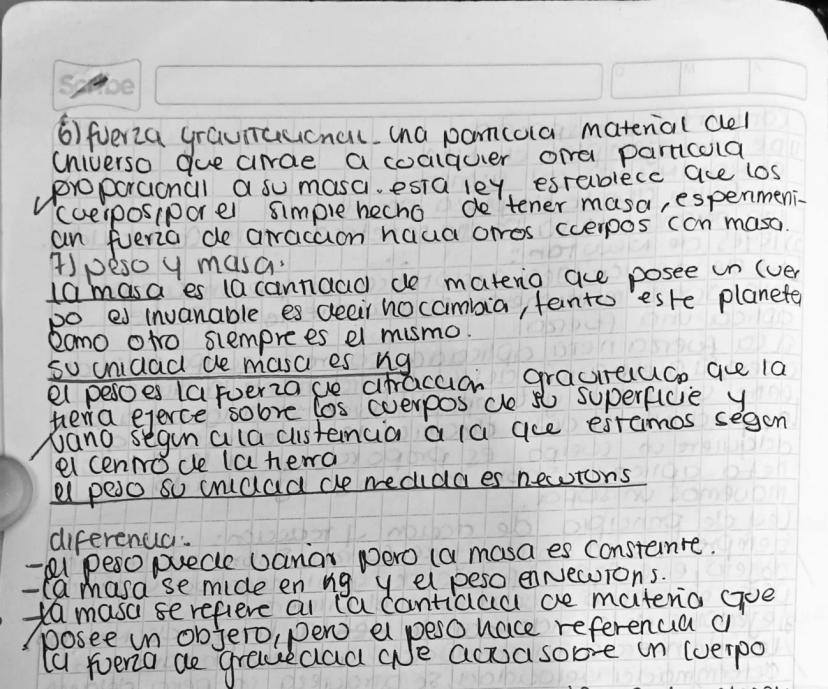 Scribe
6) fuerza gravitacional. una particula material del
universo que atrae a cualquier otra particula
proporcional a su masa. esta ley establece que los
cuerpos, por el simple hecho de tener masa, esperimen-
an fuerza de atraccion hacia otros cuerpos con masa.
7) peso y masa.
la masa es la cantidad de materia que posee un cuer
po es invariable es decir no cambia, tanto este planeta
como otro siempre es el mismo.
su unidad de masa es kg
el peso es la fuerza de atracción que la
tierra ejerce sobre los cuerpos de su superficie y
varia segun a la distancia a la que estamos segun
el centro de la tierra
el peso su unidad de medida es newtons
diferencia:
-el peso puede variar pero la masa es constante.
-la masa se mide en kg y el peso en Newtons.
-la masa se refiere al la cantidad de materia que
posee un objeto, pero el peso hace referencia a
la fuerza de gravedad que actua sobre un cuerpo